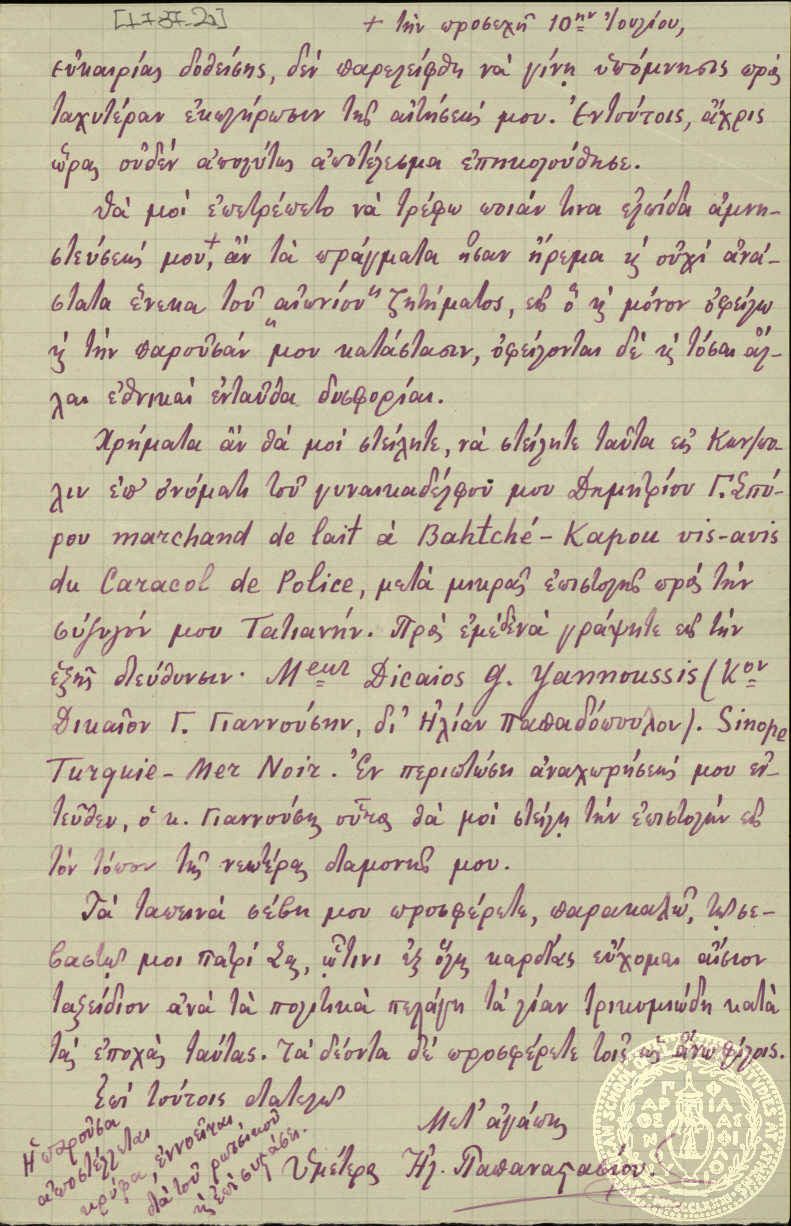 [1787-2α]
+ τὴν προσεχῆ 10ην Ἰουλίου,
εὐκαιρίας δοθείσης, δέν παρελείφθη νά γίνῃ ὑπόμνησις πρός
ταχυτέραν ἐκπλήρωσιν τῆς αἰτήσεώς μου. Ἐντούτοις, ἄχρις
ὥρας οὐδέν ἀπολύτως ἀποτέλεσμα ἐπηκολούθησε.
Θά μοί ἐπετρέπετο νά τρέφω ποιάν τινα ἐλπίδα ἀμνη-
στεύσεώς μου,+ ἄν τά πράγματα ἦσαν ἤρεμα κ' οὐχί ἀνά-
στατα ἕνεκα τοῦ αἰωνίου" ζητήματος, εἰς ὅ κ' μόνον ὀφείλω
κ' τήν παροῦσάν "μου κατάστασιν, ὀφείλονται δέ κ' τόσαι ἄλ-
λαι ἐθνικαί ἐνταῦθα δυσφορίαι.
Χρήματα ἄν θά μοί στείλητε, νά στείλητε ταῦτα εἰς Κων/πο-
λιν ἐπ' ὀνόματι τοῦ γυναικαδέλφου μου Δημητρίου Γ. Σπύ-
ρου marchand de lait à Bahtché-Kapou vis-avis
du Caracol de Police, μετά μικρᾶς ἐπιστολῆς πρός τήν
σύζυγόν μου Τατιανήν. Πρός ἐμέ δὲ νά γράψητε εἰς τήν
ἑξῆς διεύθυνσιν· Meur Dicaios G. Yannoussis (Κον
Δικαῖον Γ. Γιαννούσην, δι' Ἠλίαν Παπαδόπουλον). Sinope
Turquie - Mer Noir. Ἐν περιπτώσει ἀναχωρήσεώς μου ἐν-
τεῦθεν, ὁ κ. Γιαννούσης οὗτος θά μοί στείλῃ τήν ἐπιστολήν εἰς
τόν τόπον τῆς νεωτέρας διαμονῆς μου.
Τά ταπεινά σέβη μου προσφέρετε, παρακαλῶ, τῷ σε-
βαστῷ μοι πατρί Σας, ᾧτινι ἐξ ὅλης καρδίας εὔχομαι αἴσιον
ταξείδιον ἀνά τά πολιτικά πελάγη τά λίαν τρικυμιώδη κατά
τάς ἐποχάς ταύτας. Τά δέοντα δέ προσφέρετε τοῖς ὡς ἄνω φίλοις.
Ἐπί τούτοις διατελῶ
Μετ' ἀγάπης
Ὑμέτερος Ἠλ. Παπαναστασίου
Ἡ παροῦσα
ἀποστέλλεται
κρύφα, ἐννοεῖται
διά τοῦ ρωσικοῦ